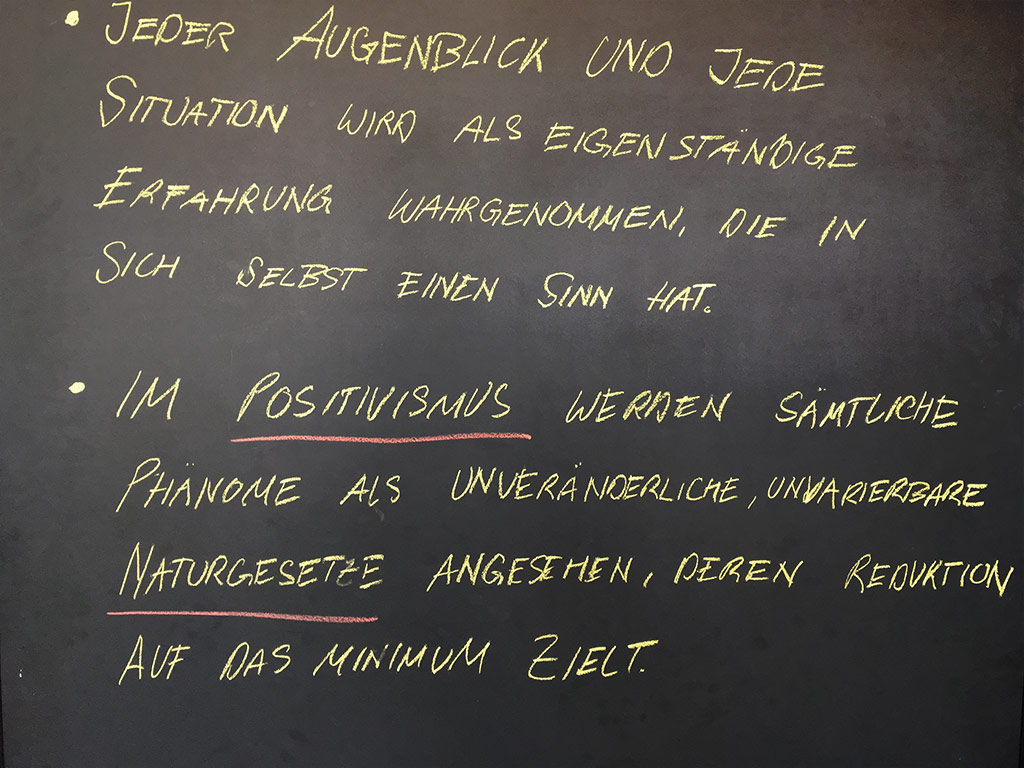 • JEDER AUGENBLICK UND JEDE
SITUATION WIRD ALS EIGENSTÄNDIGE
ERFAHRUNG WAHRGENOMMEN, DIE IN
SICH SELBST EINEN SINN HAT.
• IM POSITIVISMUS WERDEN SÄMTLICHE
PHÄNOME ALS UNVERÄNDERLICHE, UNVARIERBARE
NATURGESETZE ANGESEHEN, DEREN REDUKTION
AUF DAS MINIMUM ZIELT.